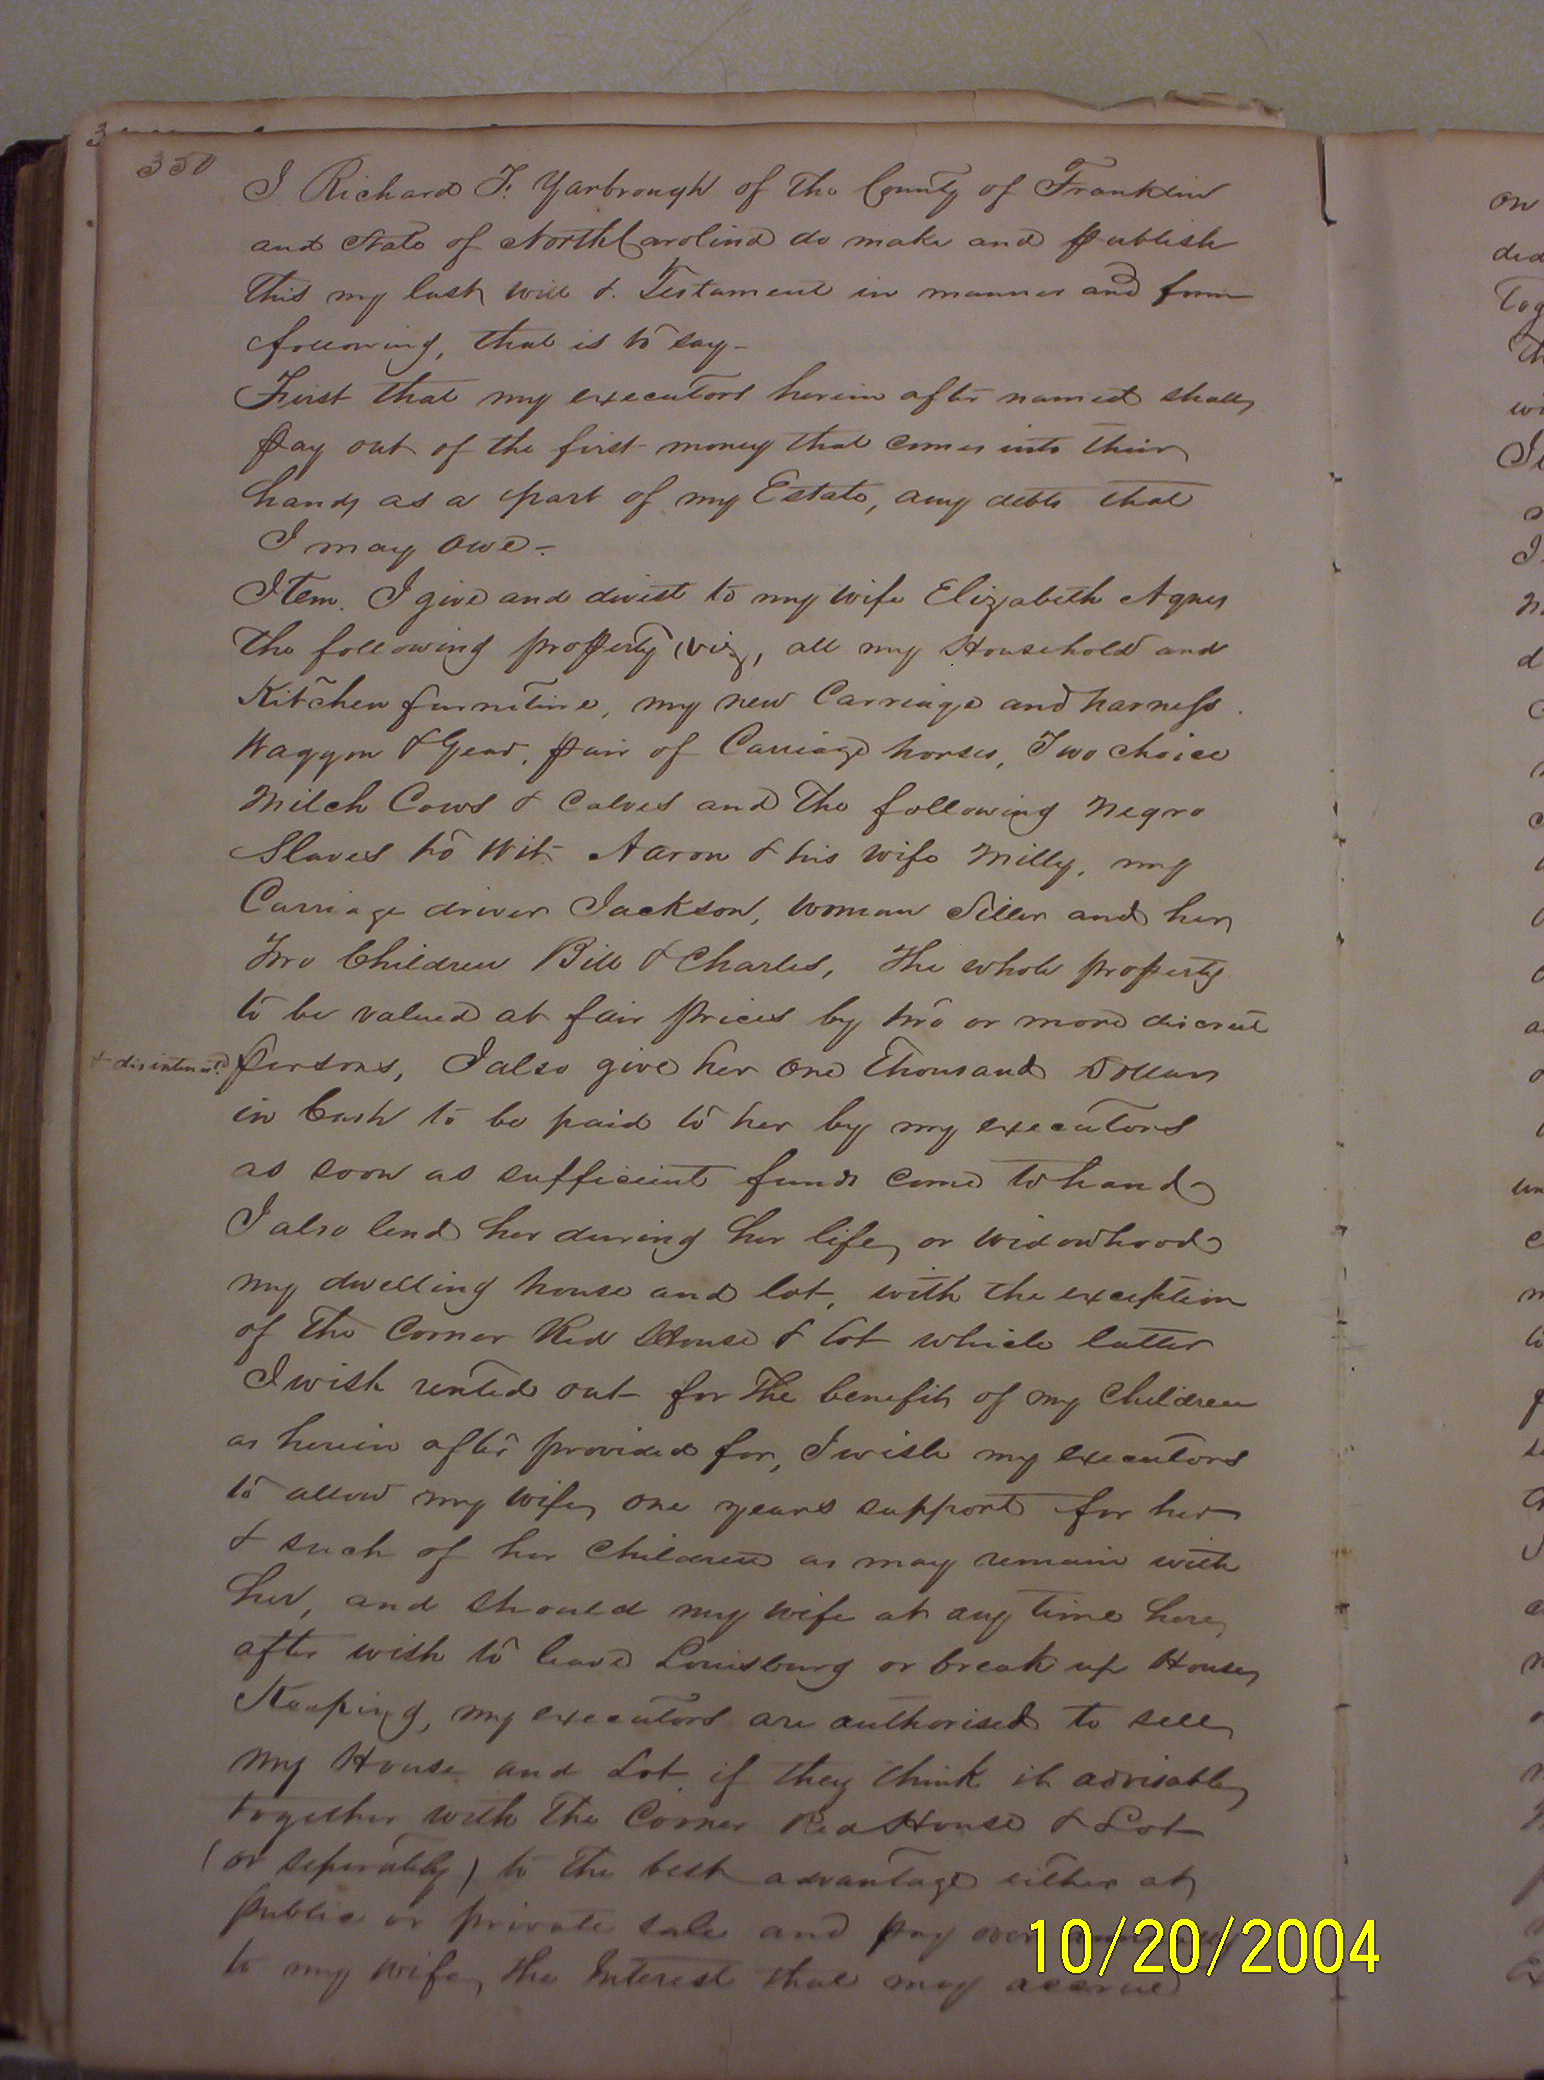 350
I Richard F. Yarbrough of the County of Franklin
and State of North Carolina do make and publish
this my last will & Testament in manner and form
following, that is to say-
First that my executors herein after named shall
pay out of the first money that comes into their
hands as a part of my Estate, any debts that
I may owe-
Item. I give and divest to my wife Elizabeth Agnes
the following property (viz, all my Household and
Kitchen furniture, my new Carriage and harness.
Waggon & Gear, pair of Carriage horses, Two choice
Milch Cows & Calves and the following Negro
Slaves to Wit. Aaron & his wife Milly, my
Carriage driver Jackson, Woman Siller and her
Two Children Bill & Charles, The whole property
to be valued at fair prices by two or more discreet
& disinterested persons, I also give her One Thousand Dollars
in Cash to be paid to her by my executors
as soon as sufficient funds come to hand
I also lend her during her life or widowhood
my dwelling house and lot, with the exception
of the Corner Red House & Lot which latter
I wish rented out for the benefit of my Children
as herein after provided for, I wish my executors
to allow my wife one years support for her
& such of her Children as may remain with
her, and should my wife at any time here
after wish to leave Louisburg or break up House
Keeping, my executors are authorised to sell
my House and Lot if they think it advisable
together with the Corner Red House & Lot
(or seperately) to the best advantage either at
public or private sale and pay over
to my wife the Interest that may accrue
10/20/2004